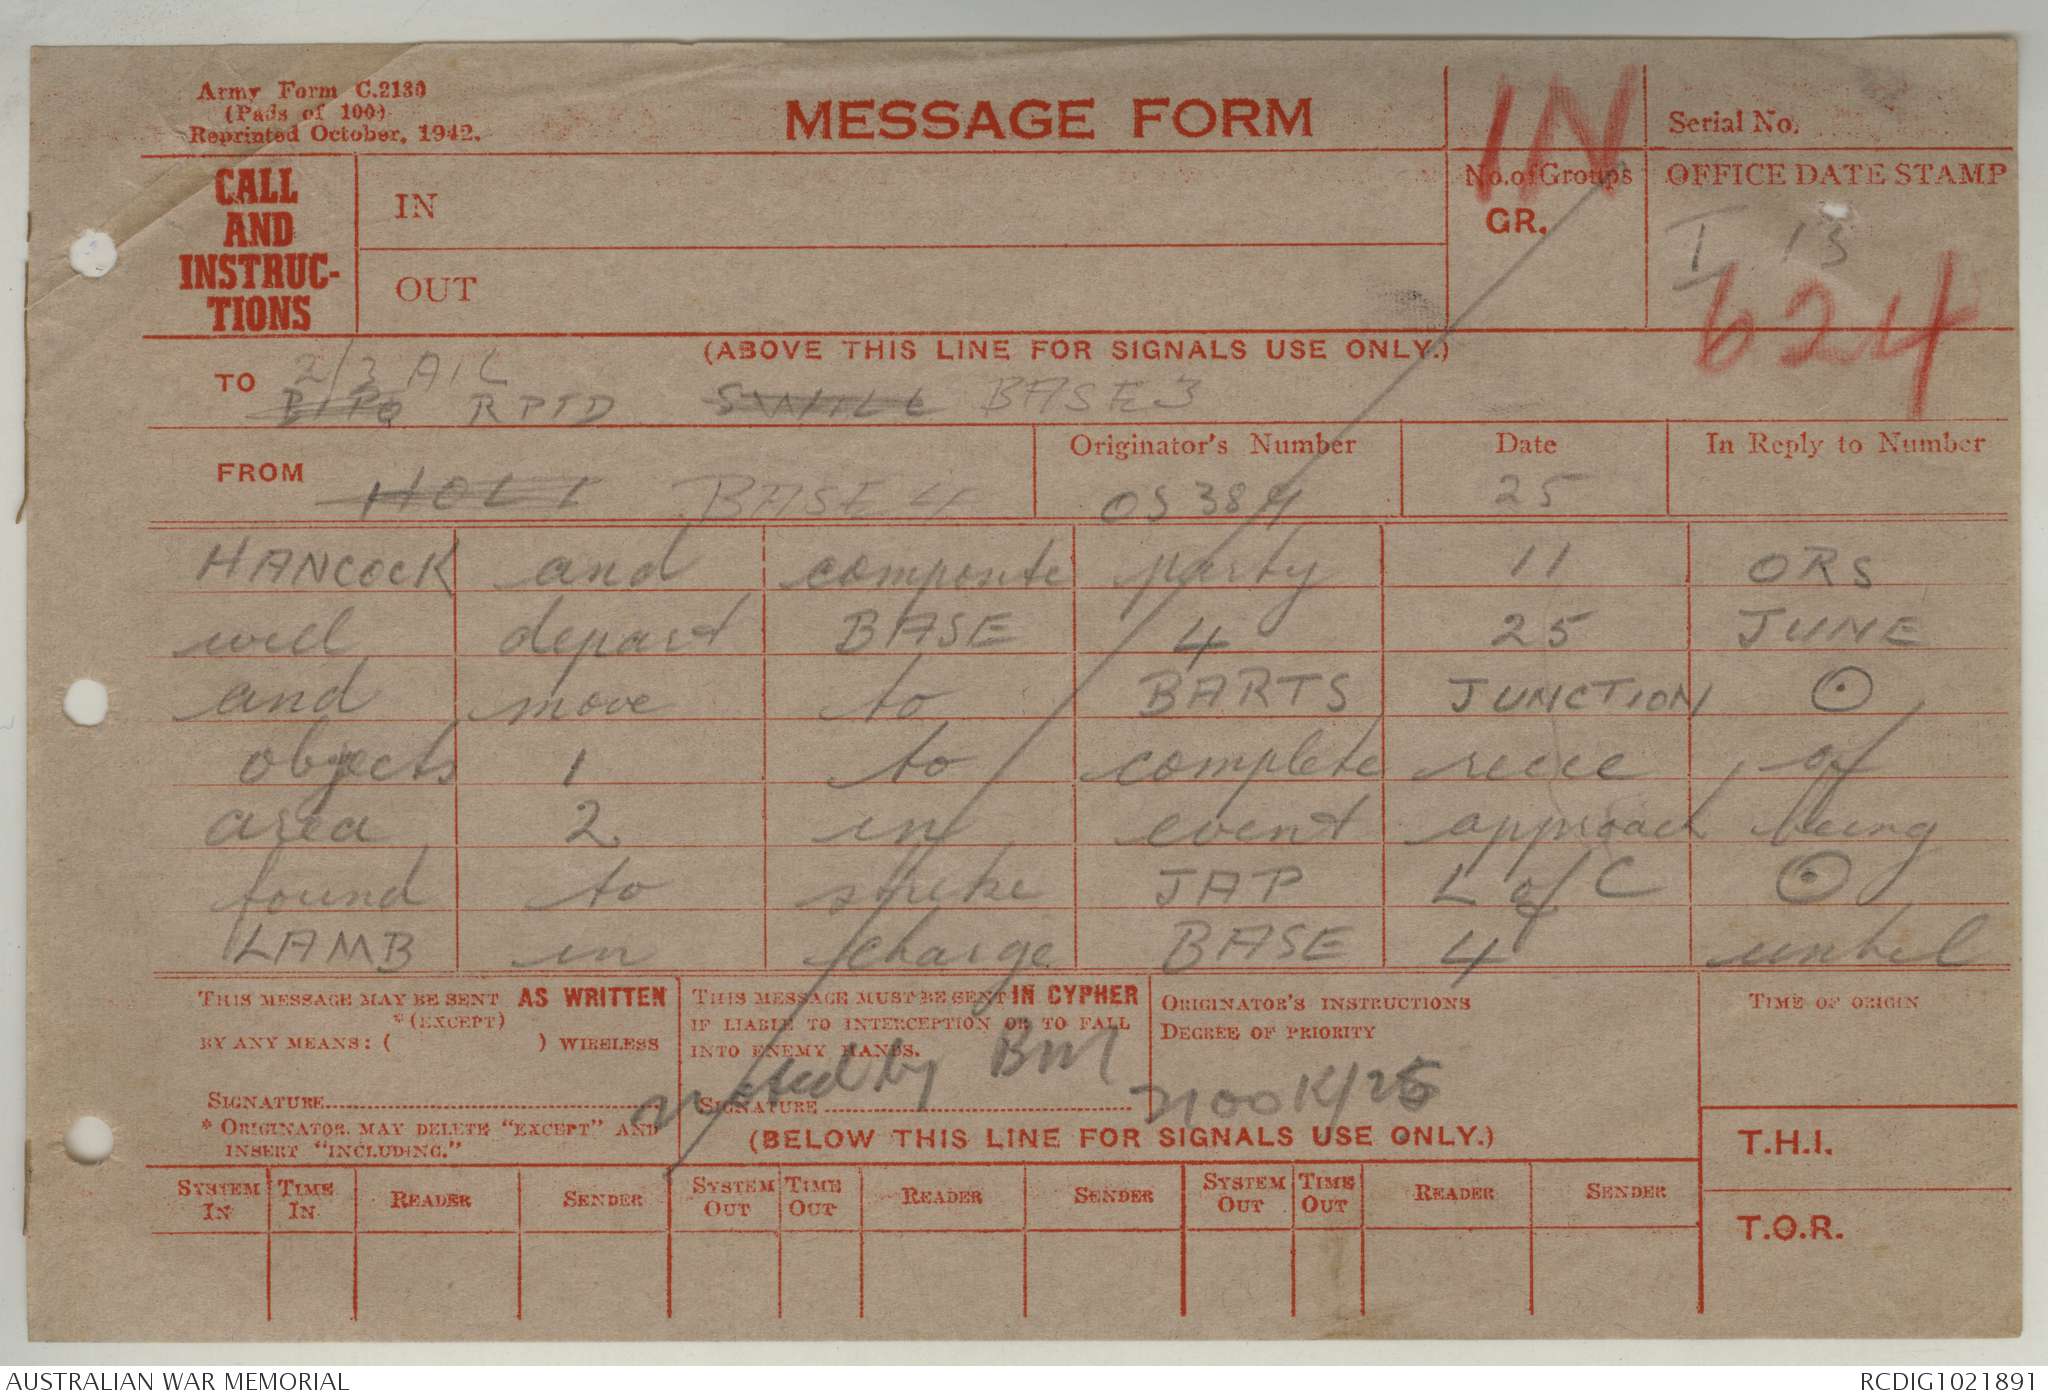 Army Form C.2130
(Pads of 100)
Reprinted October, 1942.
MESSAGE FORM
IN
Serial No.
CALL AND INSTRUC-TIONS
IN
OUT
No. of Groups
GR.
OFFICE DATE STAMP
I 13
624
(ABOVE THIS LINE FOR SIGNALS USE ONLY.)
TO 2/3 A.I.C
RPTD BASE 3
FROM BASE 4
Originator's Number OS 384
Date 25
In Reply to Number
HANCOCK and composite party 11 ORS
will depart BASE 4 25 JUNE
and move to BARTS JUNCTION ⊙
objects 1 to complete recce of
area 2 in event approach being
found to strike JAP L of C ⊙
LAMB in charge BASE 4 until
THIS MESSAGE MAY BE SENT AS WRITTEN
*(EXCEPT)
BY ANY MEANS: ( ) WIRELESS
SIGNATURE
* ORIGINATOR MAY DELETE "EXCEPT" AND
INSERT "INCLUDING."
THIS MESSAGE MUST BE SENT IN CYPHER
IF LIABLE TO INTERCEPTION OR TO FALL
INTO ENEMY HANDS.
noted by BM 2100K/25
SIGNATURE
ORIGINATOR'S INSTRUCTIONS
DEGREE OF PRIORITY
TIME OF ORIGIN
(BELOW THIS LINE FOR SIGNALS USE ONLY.)
T.H.I.
T.O.R.
SYSTEM IN TIME IN READER SENDER SYSTEM OUT TIME OUT READER SENDER SYSTEM OUT TIME OUT READER SENDER
AUSTRALIAN WAR MEMORIAL
RCDIG1021891